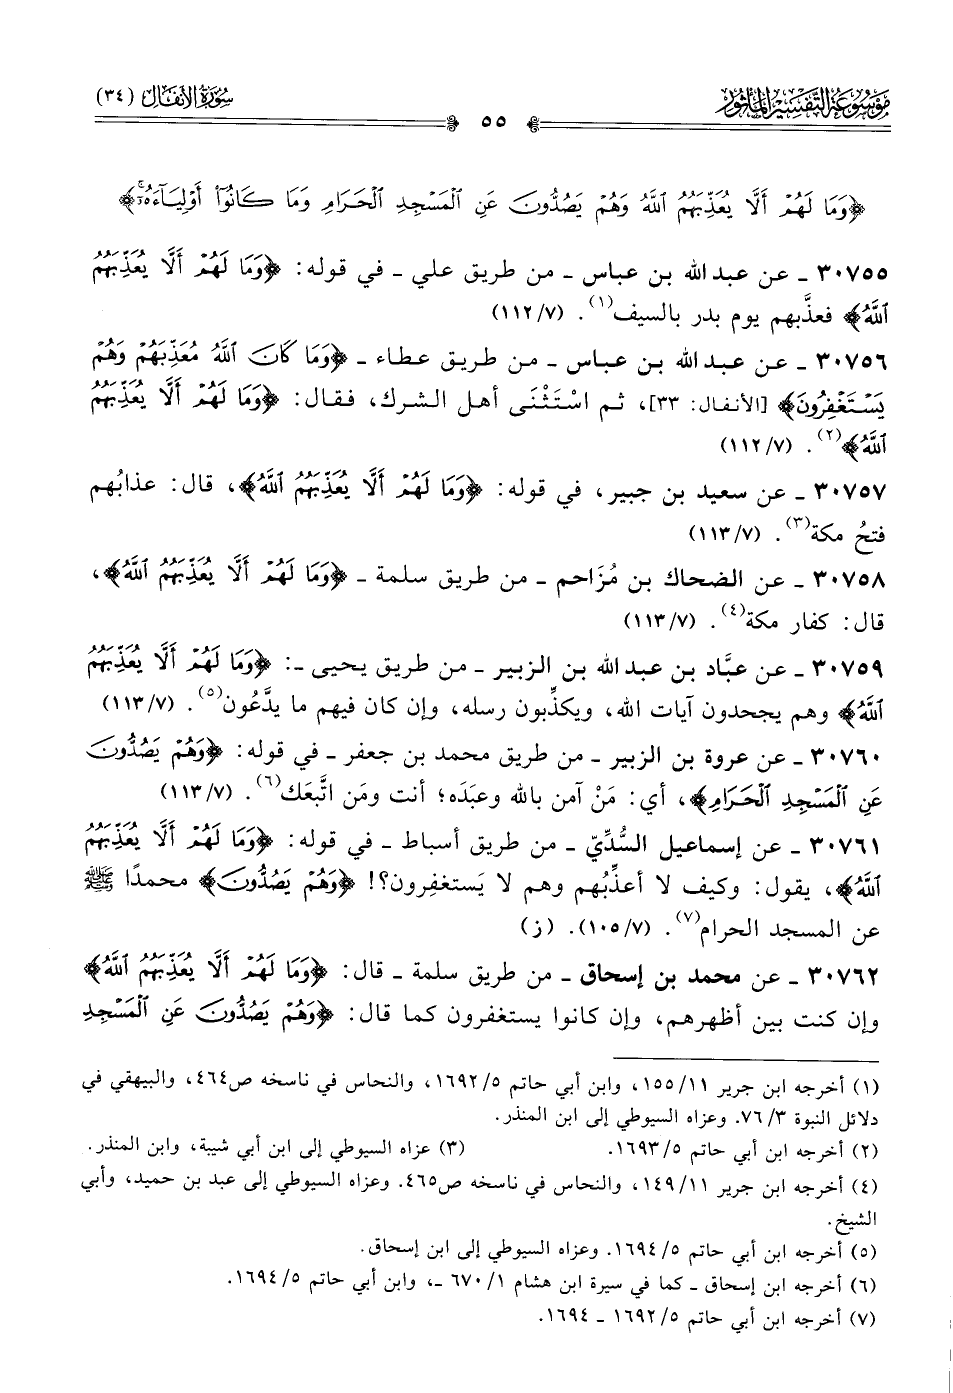 موسوعة التفسير المأثور
٥٥
سورة الأنفال (٣٤)
﴿وَمَا لَهُمْ أَلَّا يُعَذِّبَهُمُ ٱللَّهُ وَهُمْ يَصُدُّونَ عَنِ ٱلْمَسْجِدِ ٱلْحَرَامِ وَمَا كَانُوٓا۟ أَوْلِيَآءَهُۥٓ﴾
٣٠٧٥٥ ـ عن عبد الله بن عباس ـ من طريق علي ـ في قوله: ﴿وَمَا لَهُمْ أَلَّا يُعَذِّبَهُمُ
ٱللَّهُ﴾ فعذَّبهم يوم بدر بالسيف(١). (٧/ ١١٢)
٣٠٧٥٦ ـ عن عبد الله بن عباس ـ من طريق عطاء ـ ﴿وَمَا كَانَ ٱللَّهُ مُعَذِّبَهُمْ وَهُمْ
يَسْتَغْفِرُونَ﴾ [الأنفال: ٣٣]، ثم اسْتَثْنَى أهل الشرك، فقال: ﴿وَمَا لَهُمْ أَلَّا يُعَذِّبَهُمُ
ٱللَّهُ﴾(٢). (٧/ ١١٢)
٣٠٧٥٧ ـ عن سعيد بن جبير، في قوله: ﴿وَمَا لَهُمْ أَلَّا يُعَذِّبَهُمُ ٱللَّهُ﴾، قال: عذابُهم
فتحُ مكة(٣). (٧/ ١١٣)
٣٠٧٥٨ ـ عن الضحاك بن مُزَاحم ـ من طريق سلمة ـ ﴿وَمَا لَهُمْ أَلَّا يُعَذِّبَهُمُ ٱللَّهُ﴾،
قال: كفار مكة(٤). (٧/ ١١٣)
٣٠٧٥٩ ـ عن عبَّاد بن عبد الله بن الزبير ـ من طريق يحيى ـ: ﴿وَمَا لَهُمْ أَلَّا يُعَذِّبَهُمُ
ٱللَّهُ﴾ وهم يجحدون آيات الله، ويكذِّبون رسله، وإن كان فيهم ما يدَّعُون(٥). (٧/ ١١٣)
٣٠٧٦٠ ـ عن عروة بن الزبير ـ من طريق محمد بن جعفر ـ في قوله: ﴿وَهُمْ يَصُدُّونَ
عَنِ ٱلْمَسْجِدِ ٱلْحَرَامِ﴾، أي: مَنْ آمن بالله وعبَدَه؛ أنت ومَن اتَّبَعَك(٦). (٧/ ١١٣)
٣٠٧٦١ ـ عن إسماعيل السُّدِّيّ ـ من طريق أسباط ـ في قوله: ﴿وَمَا لَهُمْ أَلَّا يُعَذِّبَهُمُ
ٱللَّهُ﴾، يقول: وكيف لا أعذِّبُهم وهم لا يَستغفِرون؟! ﴿وَهُمْ يَصُدُّونَ﴾ محمدًا ﷺ
عن المسجد الحرام(٧). (٧/ ١٠٥). (ز)
٣٠٧٦٢ ـ عن محمد بن إسحاق ـ من طريق سلمة ـ قال: ﴿وَمَا لَهُمْ أَلَّا يُعَذِّبَهُمُ ٱللَّهُ﴾
وإن كنت بين أظهرهم، وإن كانوا يستغفرون كما قال: ﴿وَهُمْ يَصُدُّونَ عَنِ ٱلْمَسْجِدِ
(١) أخرجه ابن جرير ١١/ ١٥٥، وابن أبي حاتم ٥/ ١٦٩٢، والنحاس في ناسخه ص٤٦٤، والبيهقي في
دلائل النبوة ٣/ ٧٦. وعزاه السيوطي إلى ابن المنذر.
(٢) أخرجه ابن أبي حاتم ٥/ ١٦٩٣. (٣) عزاه السيوطي إلى ابن أبي شيبة، وابن المنذر.
(٤) أخرجه ابن جرير ١١/ ١٤٩، والنحاس في ناسخه ص٤٦٥. وعزاه السيوطي إلى عبد بن حميد، وأبي
الشيخ.
(٥) أخرجه ابن أبي حاتم ٥/ ١٦٩٤. وعزاه السيوطي إلى ابن إسحاق.
(٦) أخرجه ابن إسحاق ـ كما في سيرة ابن هشام ١/ ٦٧٠ ـ، وابن أبي حاتم ٥/ ١٦٩٤.
(٧) أخرجه ابن أبي حاتم ٥/ ١٦٩٢ ـ ١٦٩٤.